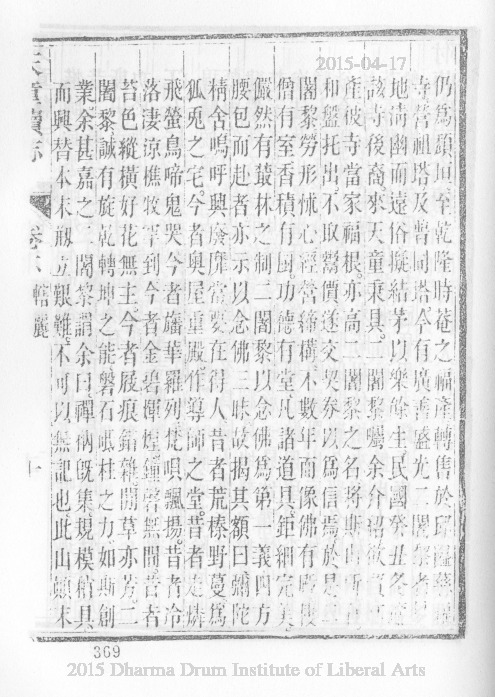 2015-04-17
仍爲頽垣至乾隆時菴之福產轉售於邱隘
寺普祖塔及普同塔今有廣善盛光二闍黎者
地清幽而遠俗擬結茅以樂餘生民國癸丑冬
該寺後裔來天童秉具二闍黎囑余介紹欲
產彼寺當家福根亦高二闍黎之名將斯山所
和盤托出不取鬻價遂交契券以爲信焉於是二
闍黎勞形怵心經營締構不數年而像佛有殿棲
僧有室香積有廚功德有堂凡諸道具鉅細完美
儼然有叢林之制二闍黎以念佛爲第一義四方
腰包而赴者亦示以念佛三昧故揭其額曰彌陀
精舍嗚呼興廢靡常要在得人昔者荒榛野蔓爲
狐兎之宅今者奥屋重殿作導師之堂昔者走燐
飛螢鳥啼鬼哭今者旛華羅列梵唄飄揚昔者冷
落淒涼樵牧罕到今者金碧輝煌鐘磬無間昔者
苔色縱橫好花無主今者屐痕錯雜閒草亦芳二
闍黎誠有旋乾轉坤之能磐石砥柱之力如斯創
業余甚嘉之二闍黎謂余曰禪衲既集規模粗具
而興替本末刱立艱難不可以無記也此山顚末
天童寺續志
卷下
轄麗
十
369
2015 Dharma Drum Institute of Liberal Arts